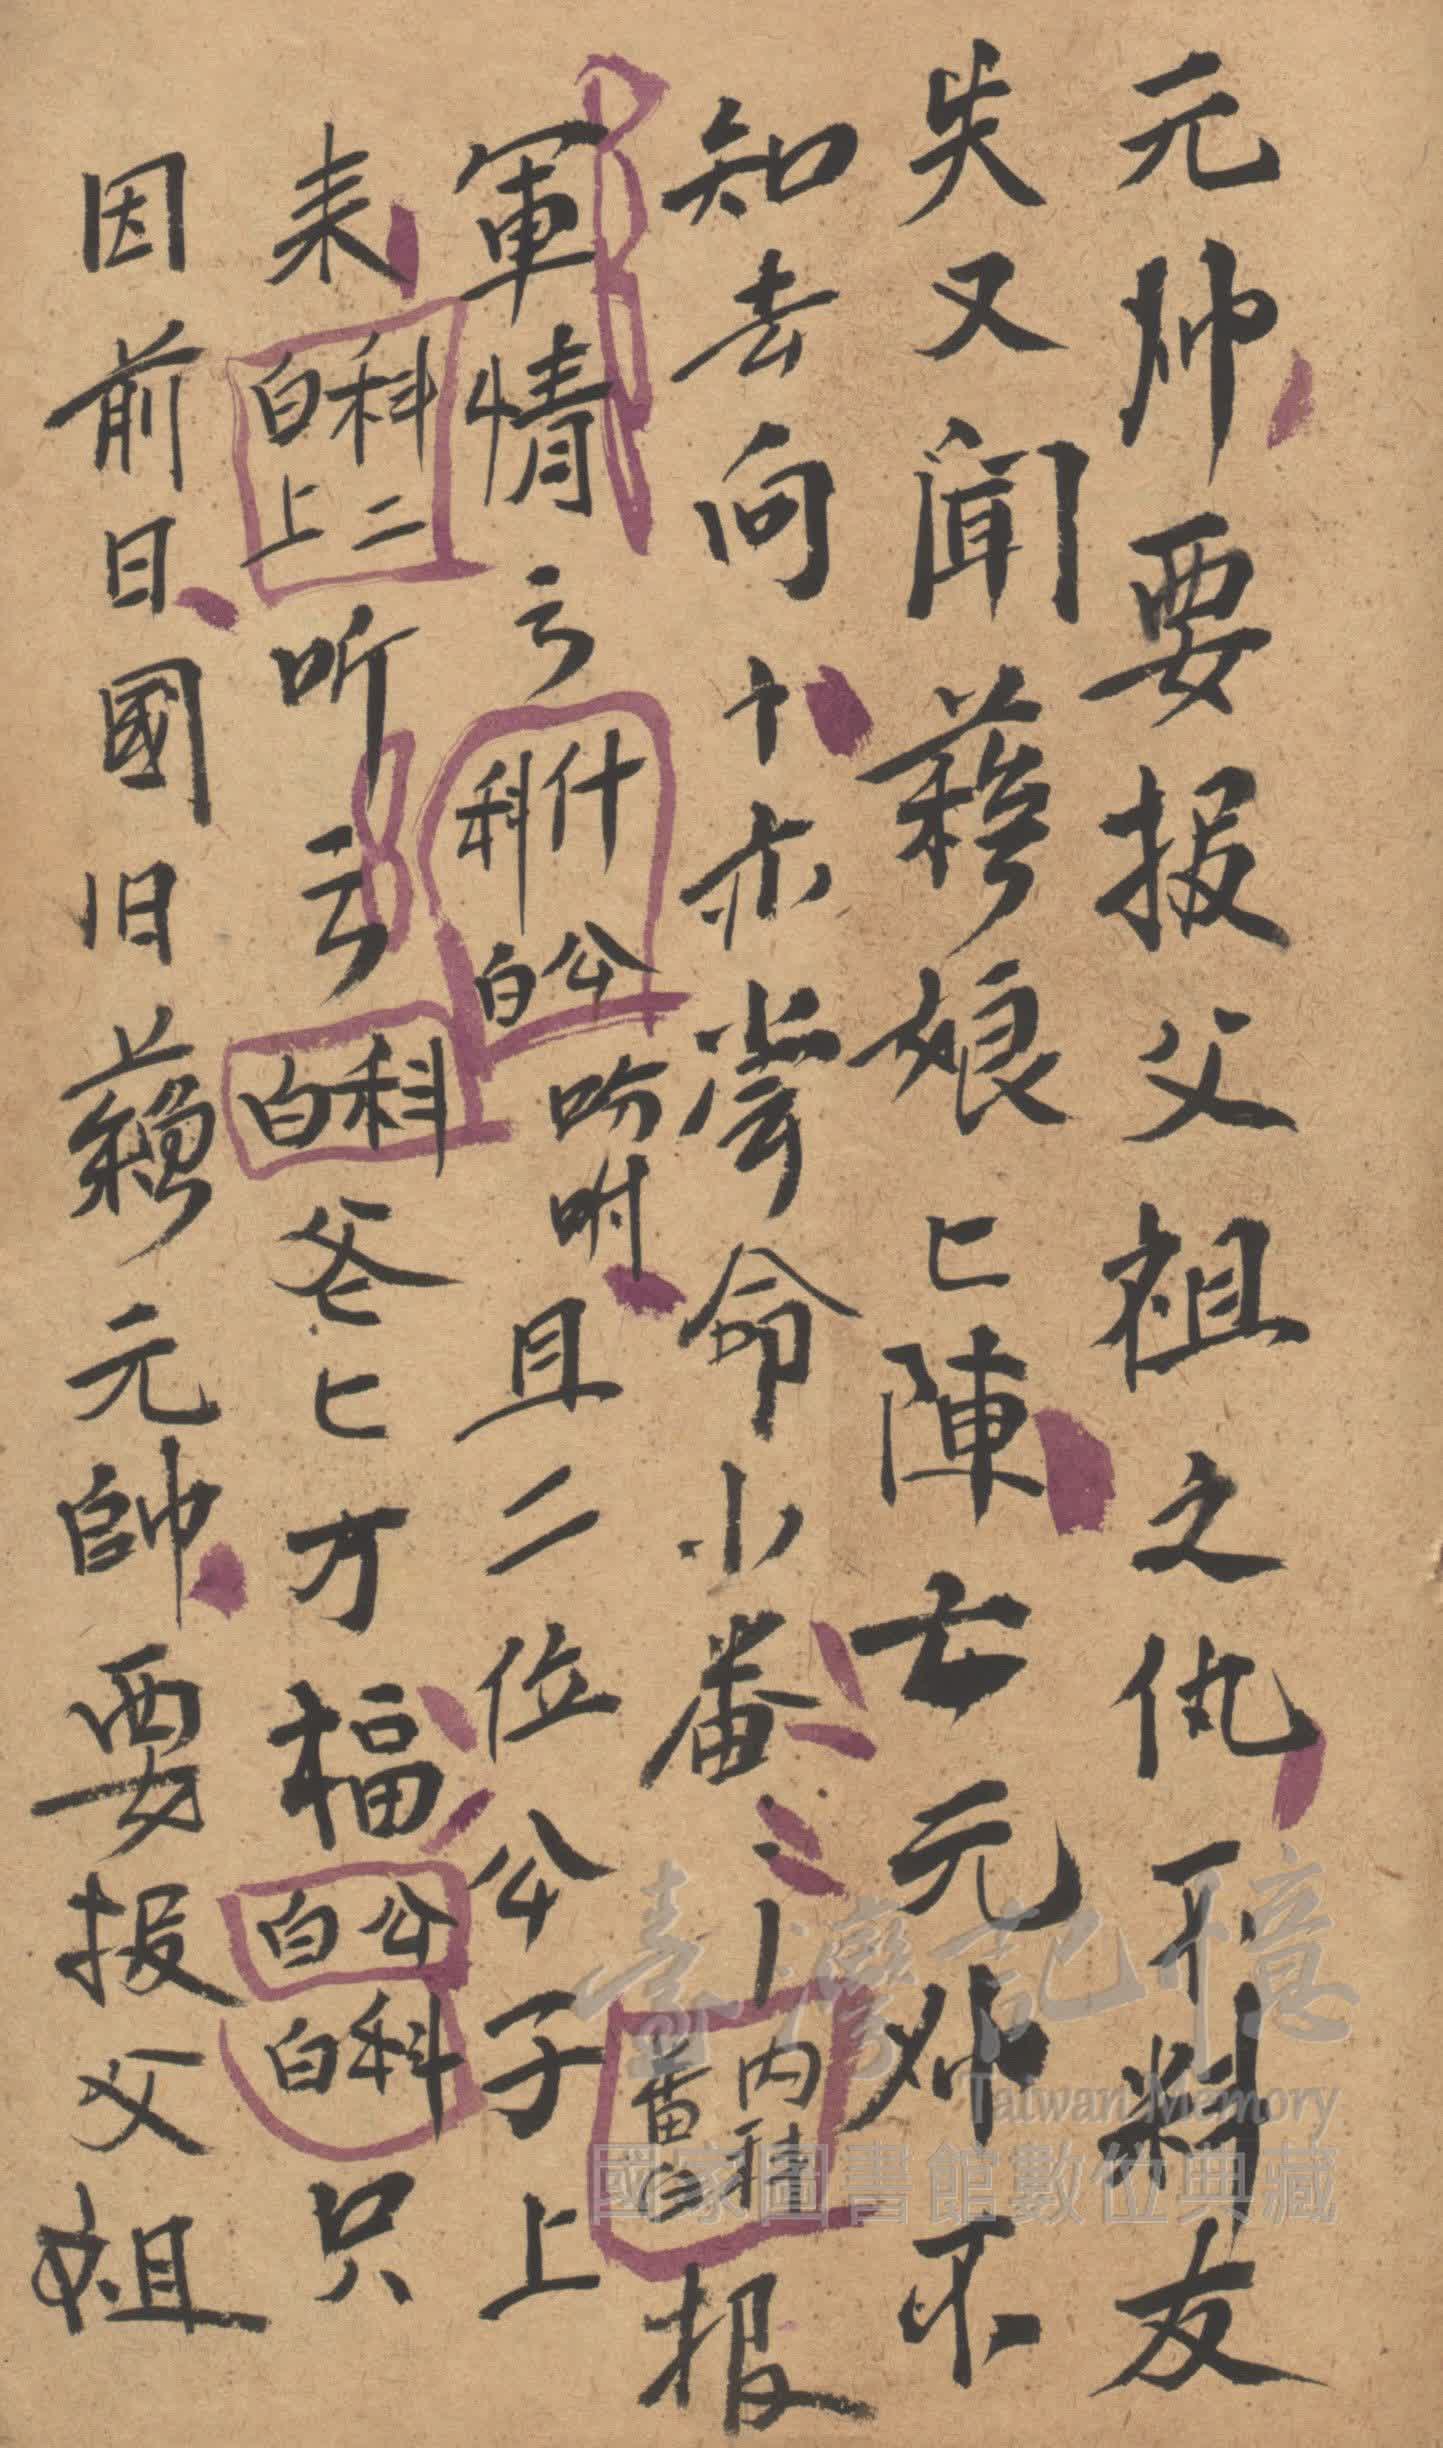 元帅要报父祖之仇不料友
失又闻蘓娘匕陣亡元帅不
知去向十赤　命小畨〻上内科畨白报
軍情云什公科白吩咐且二位公子上
来科二白上听云科白爸匕万福公白科白只
因前日國旧蘓元帥要报父祖
臺灣記憶
Taiwan Memory
國家圖書館數位典藏